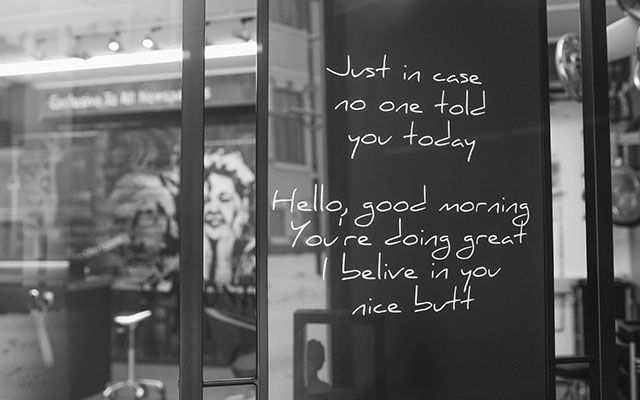 Exclusive To All Newspapers
Just in case
no one told
you today
Hello, good morning
You're doing great
I belive in you
nice butt